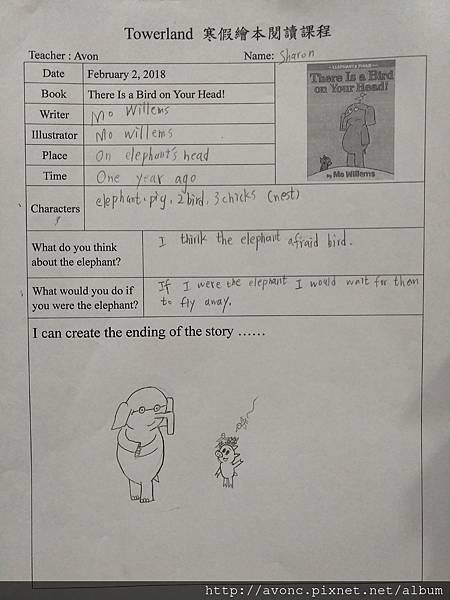 Towerland 寒假繪本閱讀課程
Teacher : Avon Name: Sharon
Date February 2, 2018
Book There Is a Bird on Your Head!
Writer Mo Willems
Illustrator Mo willems
Place On elephant's head
Time One year ago
Characters elephant, pig, 2 bird, 3 chicks (nest)
What do you think about the elephant?
I think the elephant afraid bird.
What would you do if you were the elephant?
If I were the elephant I would wait for them to fly away.
I can create the ending of the story ……
ELEPHANT & PIGGIE
There Is a Bird
on Your Head!
by Mo Willems
http://avonc.pixnet.net/album